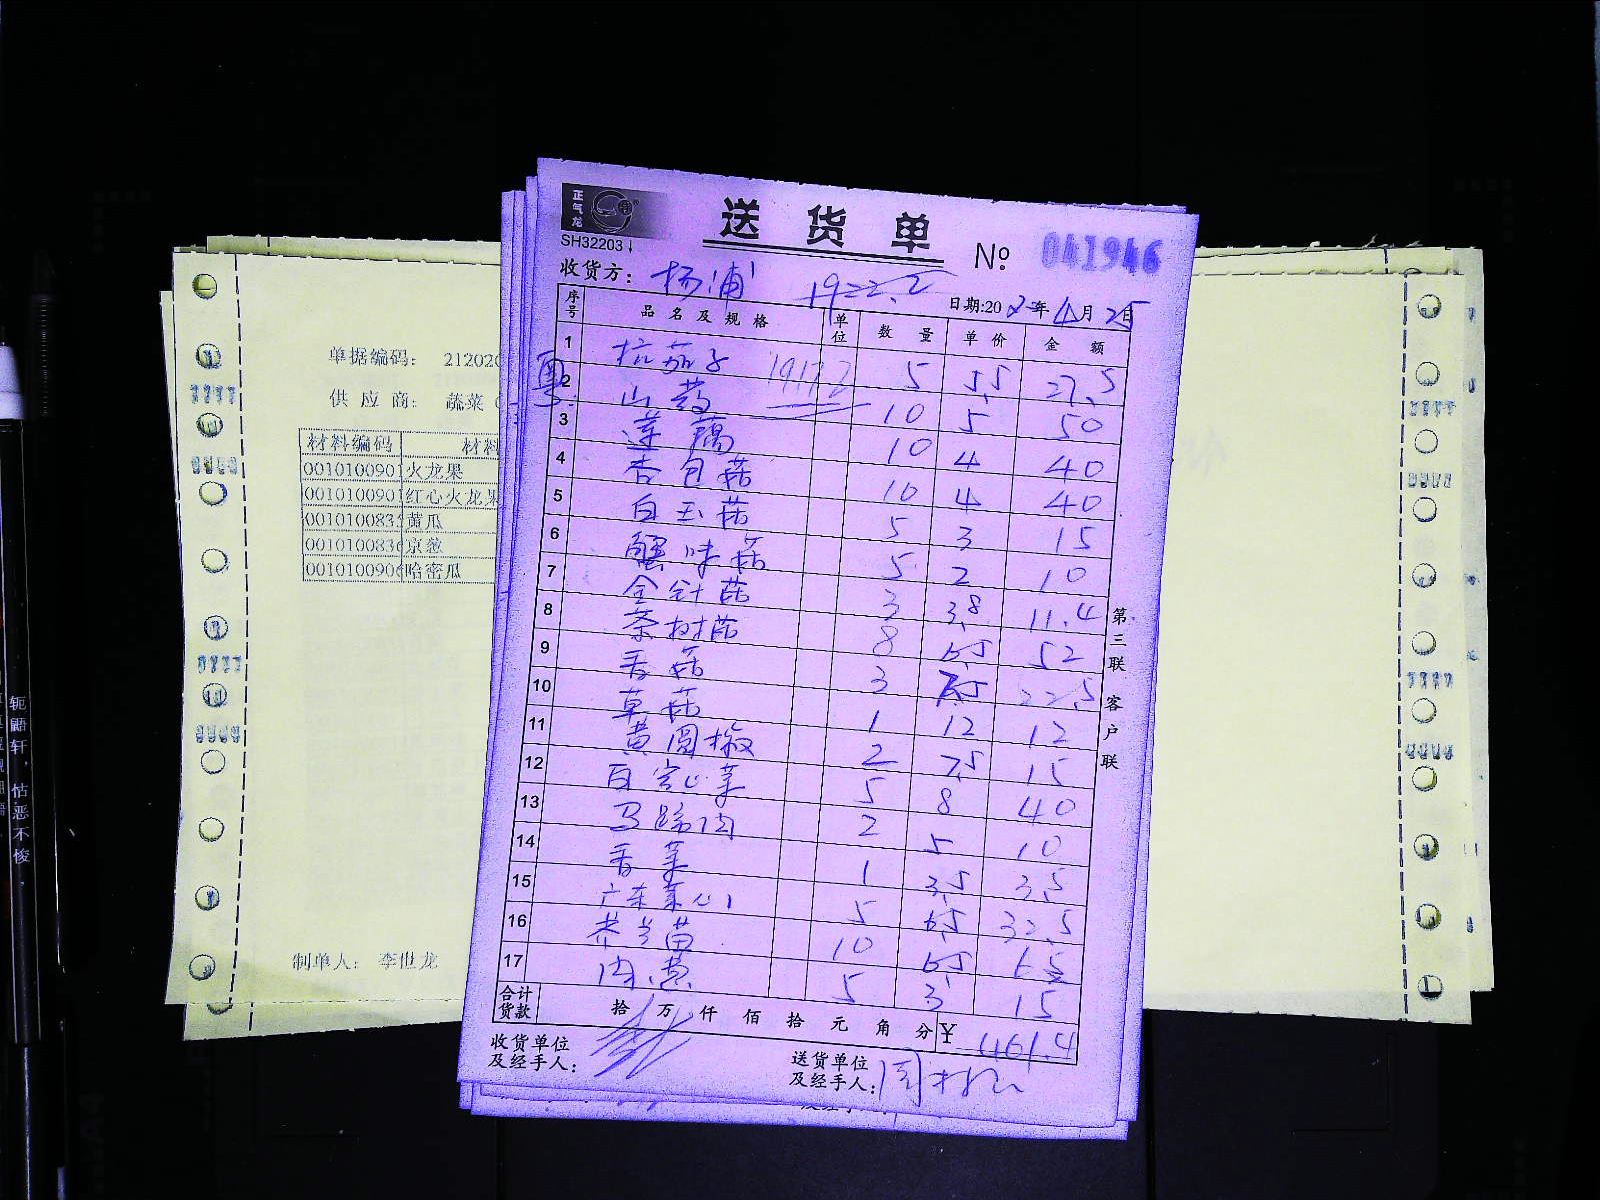 正气龙
SH32203
送货单
№ 041946
收货方: 杨浦 1922.2
日期:202年4月25日
序号 品名及规格 单位 数量 单价 金额
1 杭茄子 5 5.5 27.5
1917.2
2 山药 10 5 50
3 莲藕 10 4 40
4 杏包菇 10 4 40
5 白玉菇 5 3 15
6 蟹味菇 5 2 10
7 金针菇 3 3.8 11.4
8 茶树菇 8 6.5 52
9 香菇 3 7.5 22.5
10 草菇 1 12 12
11 黄圆椒 2 7.5 15
12 白空心菜 5 8 40
13 马蹄肉 2 5 10
14 香菜 1 3.5 3.5
15 广东菜心 5 6.5 32.5
16 10 6.5 65
17 5 3 15
合计货款 拾 万 仟 佰 拾 元 角 分 ¥ 461.4
收货单位及经手人:
送货单位及经手人: 周
第三联 客户联
单据编码: 212020
供应商: 蔬菜
材料编码 材料
0010100901 火龙果
0010100901 红心火龙果
001010083 黄瓜
001010083 京葱
001010090 哈密瓜
制单人: 李世龙
轭鼯轩，怙恶不悛